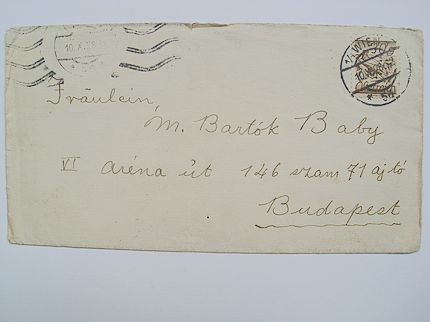 10.X.28
WIEN
Fräulein,
M. Bartók Baby
VI Aréna út 146 szam 71 ajtó
Budapest